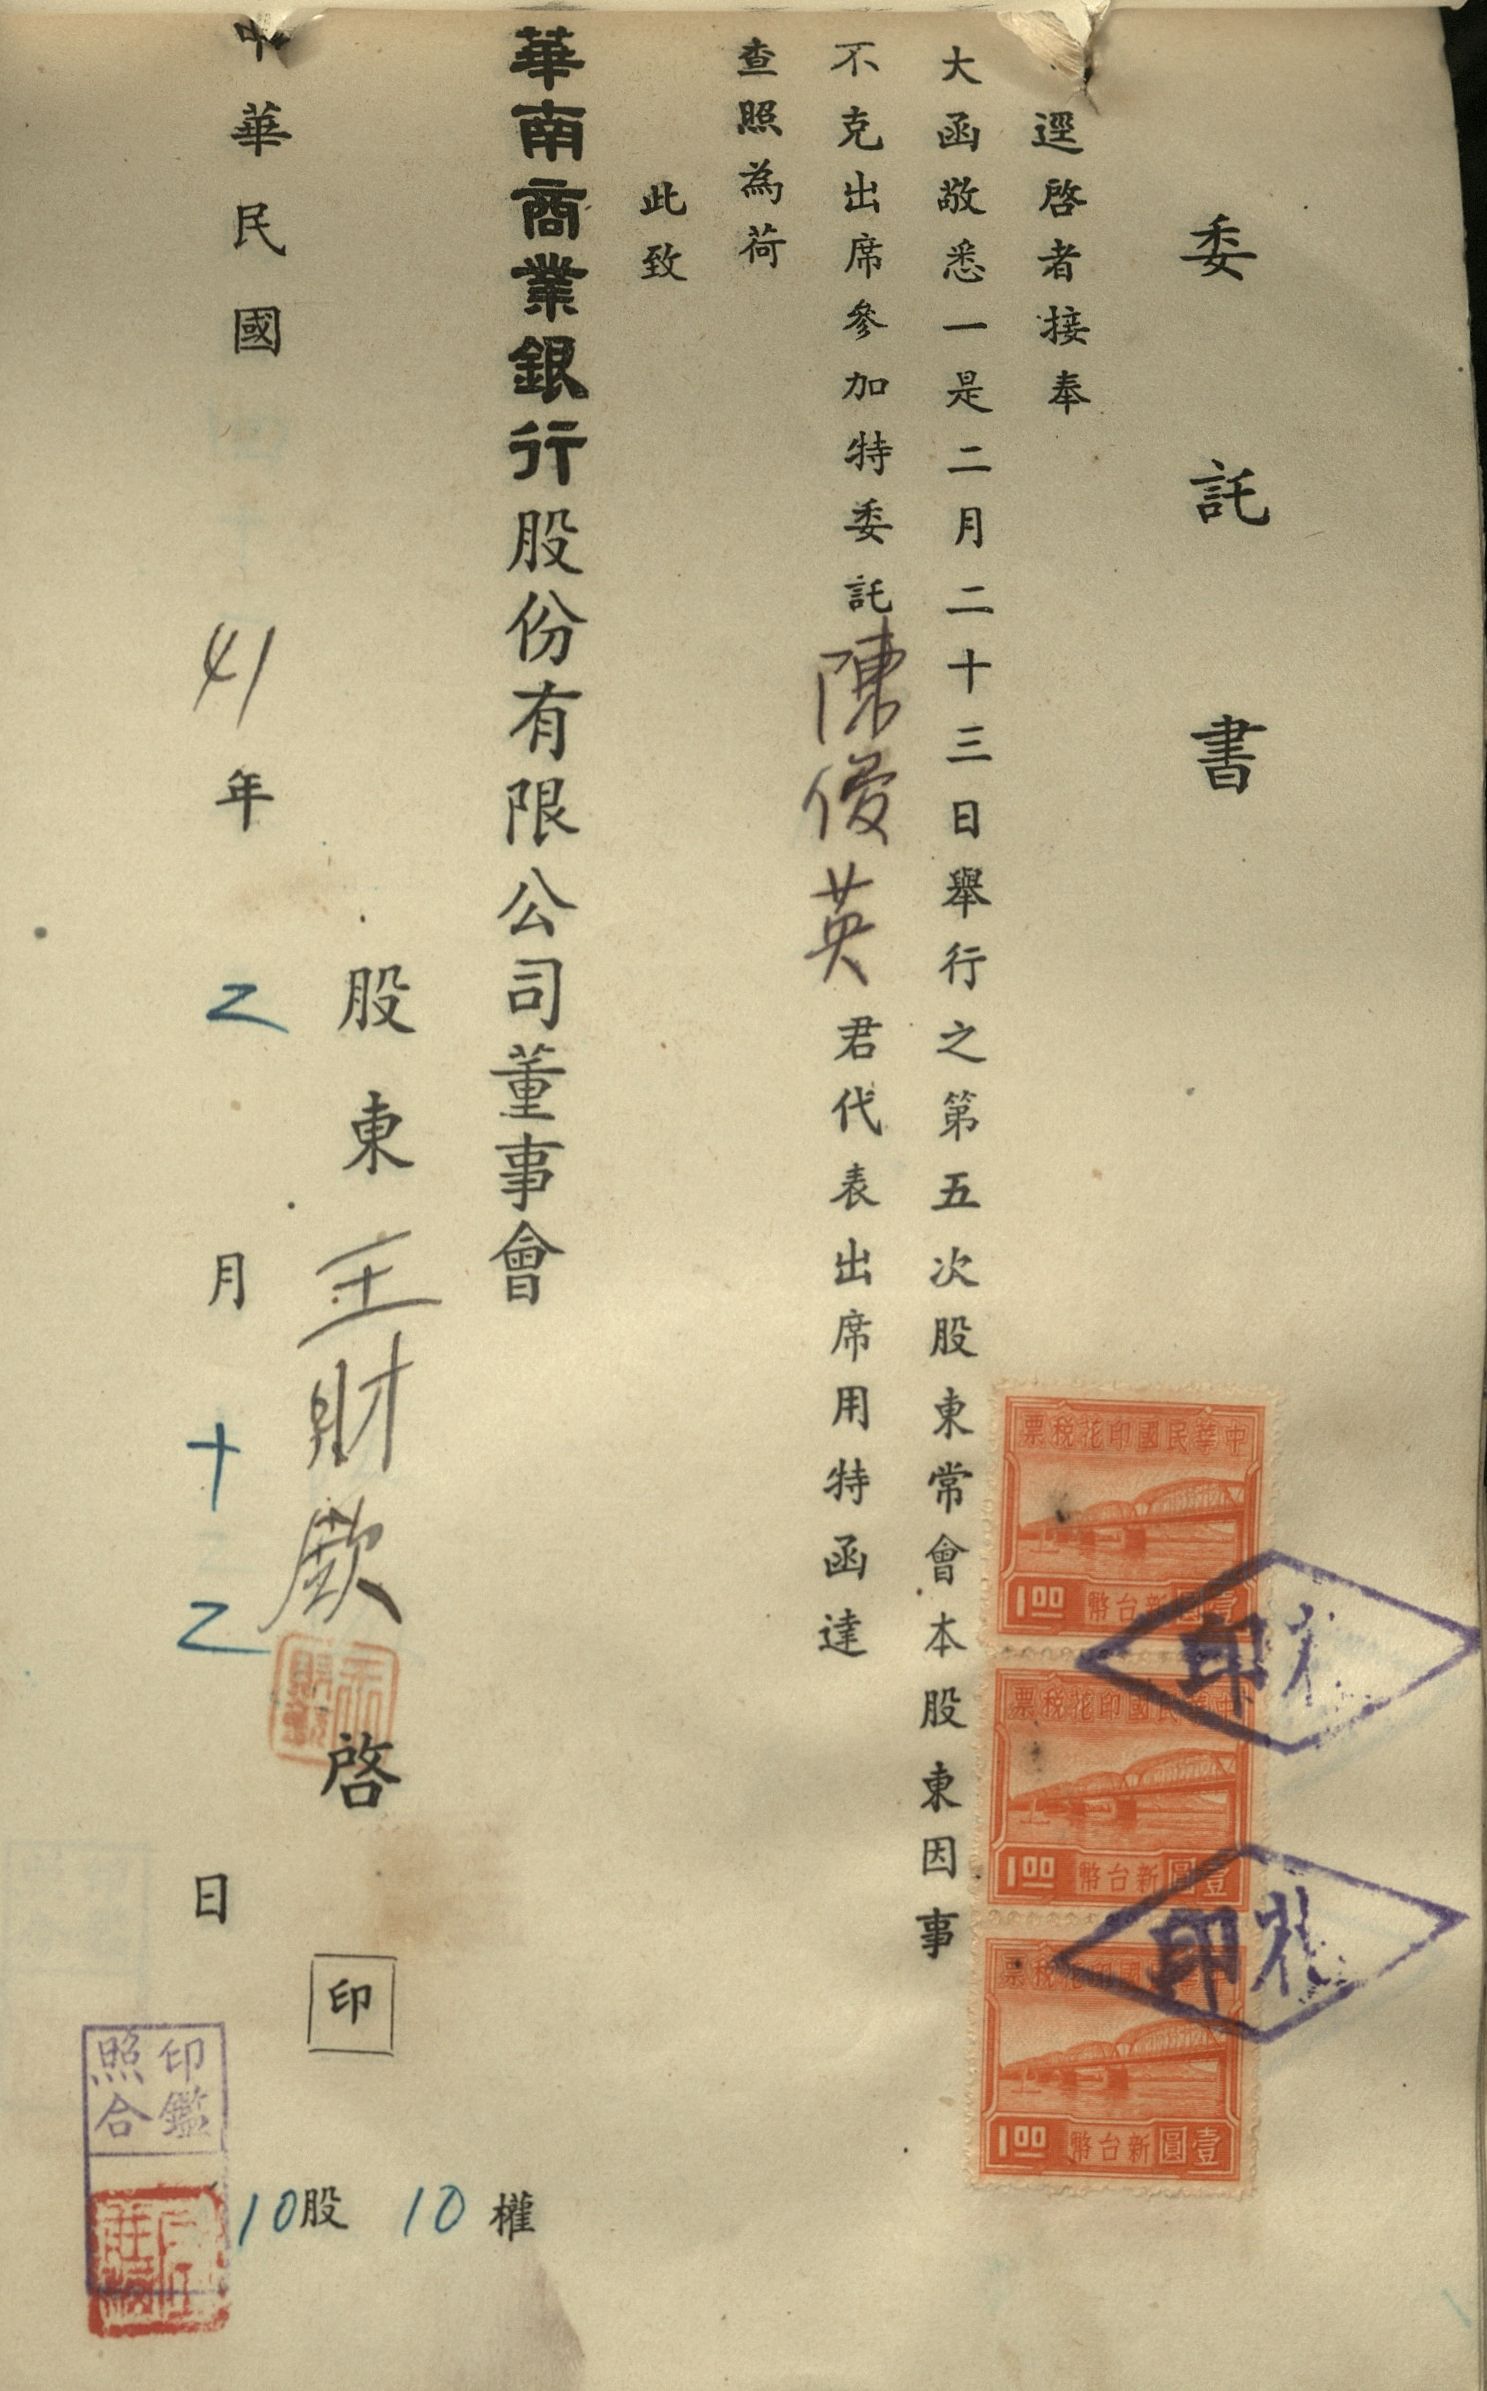 委託書
逕啓者接奉
大函敬悉一是二月二十三日舉行之第五次股東常會本股東因事
不克出席參加特委託陳俊英君代表出席用特函達
查照為荷
此致
華南商業銀行股份有限公司董事會
股東王財欽啓 印
中華民國41年乙月十乙日
10股 10權
印鑑
照合
中華民國印花稅票
壹圓新台幣 1.00
中華民國印花稅票
壹圓新台幣 1.00
中華民國印花稅票
壹圓新台幣 1.00
印花
印花